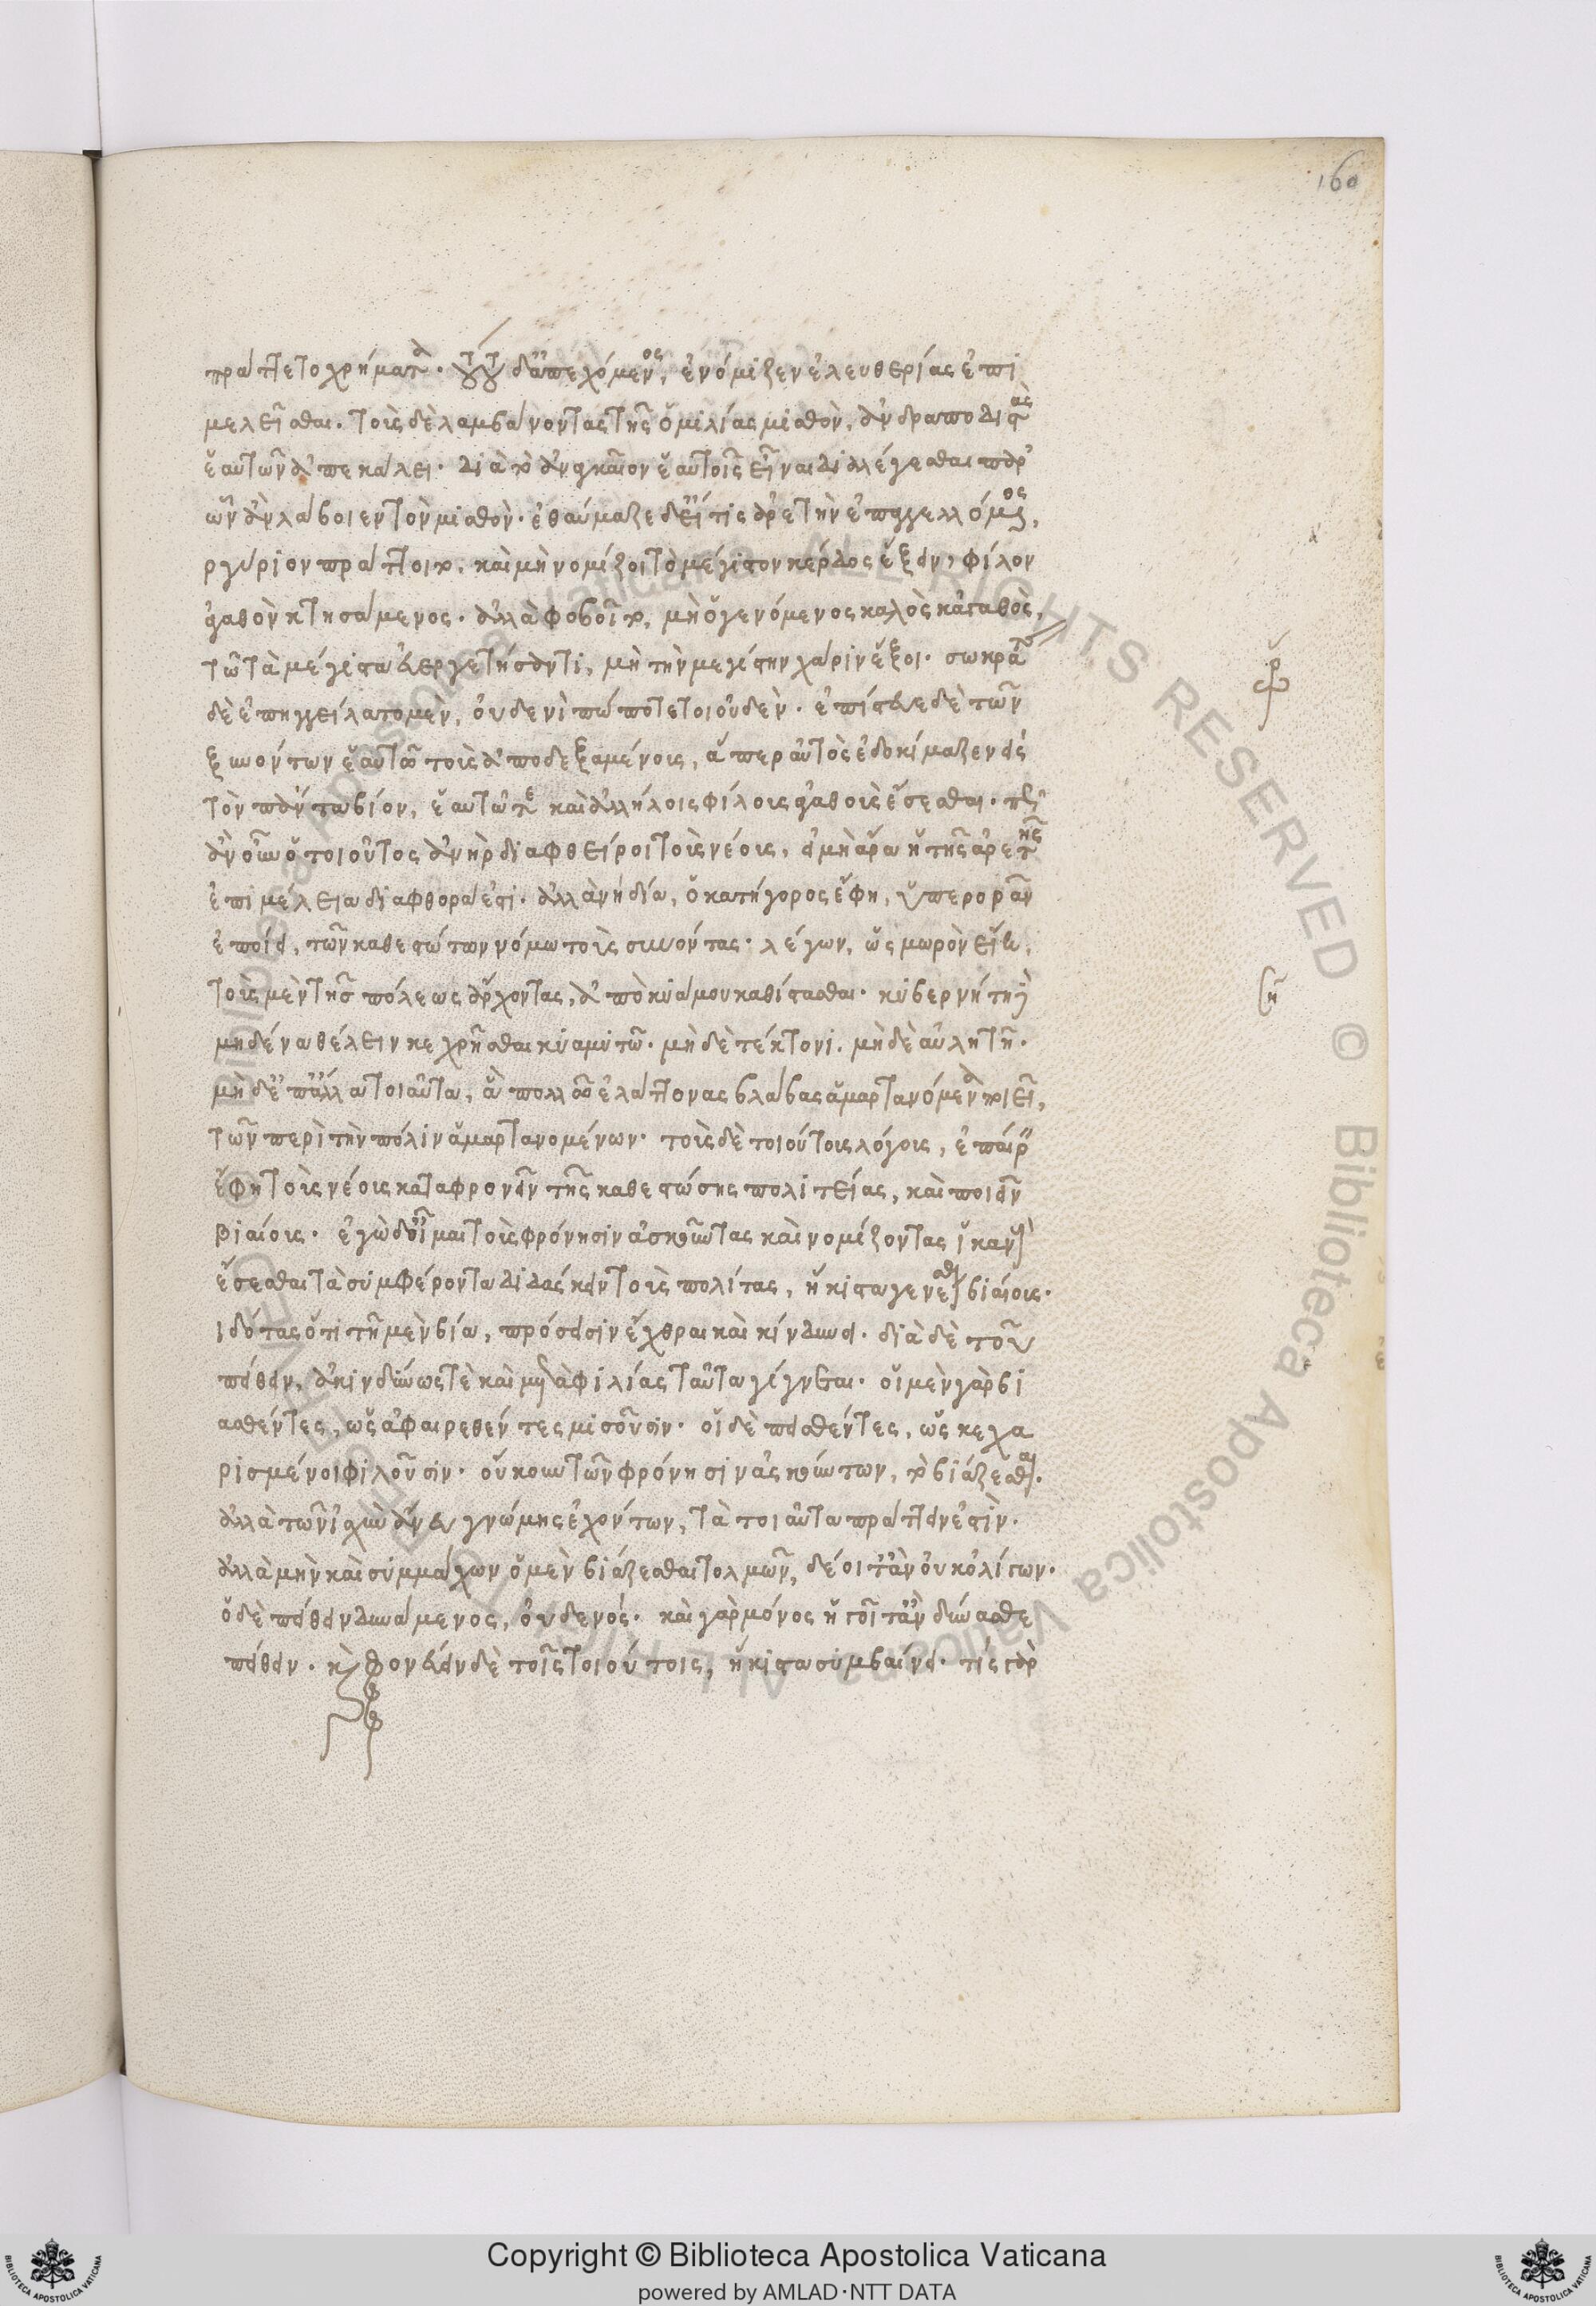 160
πράττετο χρήματα. τούτου δ᾽ ἀπεχόμενος, ἐνόμιζεν ἐλευθερίας ἐπι
μελεῖσθαι. τοὺς δὲ λαμβάνοντας τῆς ὁμιλίας μισθὸν, ἀνδραποδιστὰς
ἑαυτῶν ἀπεκάλει. διὰ τὸ ἀναγκαῖον ἑαυτοῖς εἶναι διαλέγεσθαι παρ᾽
ὧν ἂν λάβοιεν τὸν μισθὸν. ἐθαύμαζε δ᾽ εἴ τις ἀρετὴν ἐπαγγελλόμενος,
ργύριον πράττοιτο, καὶ μὴ νομίζοι τὸ μέγιστον κέρδος ἕξειν, φίλον
ἀγαθὸν κτησάμενος. ἀλλὰ φοβοῖτο, μὴ ὁ γενόμενος καλὸς κἀγαθὸς,
τῶ τὰ μέγιστα εὐεργετήσαντι, μὴ τὴν μεγίστην χάριν ἕξοι. σωκράτης
δὲ ἐπηγγείλατο μὲν, οὐδενὶ πώποτε τοιοῦδὲν. ἐπίστευε δὲ τῶν
ξυνόντων ἑαυτῶ τοὺς ἀποδεξαμένους, ἅπερ αὐτὸς ἐδοκίμαζεν εἰς
τὸν πάντα βίον, ἑαυτῶ τε καὶ ἀλλήλοις φίλους ἀγαθοὺς ἔσεσθαι. πῶς
ἂν οὖν ὁ τοιοῦτος ἀνὴρ διαφθείροι τοὺς νέους, εἰ μὴ ἄρα ἡ τῆς ἀρετῆς
ἐπιμέλεια διαφθορά ἐστι. ἀλλὰ νὴ δία, ὁ κατήγορος ἔφη, ὑπερορᾶν
ἐποίει, τῶν καθεστώτων νόμων τοὺς συνόντας. λέγων, ὡς μωρὸν εἴη,
τοὺς μὲν τῆς πόλεως ἄρχοντας, ἀπὸ κυάμου καθίστασθαι. κυβερνήτη δὲ
μηδένα θέλειν κεχρῆσθαι κυαμυτῶ. μὴ δὲ τέκτονι. μὴ δὲ αὐλητῆ.
μὴ δ᾽ ἐπ᾽ ἄλλα τοιαῦτα, ἃ πολλῶ ἐλάττονας βλάβας ἁμαρτανόμενα ποιεῖ,
τῶν περὶ τὴν πόλιν ἁμαρτανομένων. τοὺς δὲ τοιούτους λόγους, ἐπαίρειν
ἔφη τοὺς νέους καταφρονεῖν τῆς καθεστώσης πολιτείας, καὶ ποιεῖν
βιαίους. ἐγὼ δ᾽ οἶμαι τοὺς φρόνησιν ἀσκοῦντας καὶ νομίζοντας ἱκανοὺς
ἔσεσθαι τὰ συμφέροντα διδάσκειν τοὺς πολίτας, ἥκιστα γενέσθαι βιαίους.
ιδότας ὅτι τῆ μὲν βία, πρόσεισιν ἔχθραι καὶ κίνδυνοι. διὰ δὲ τοῦ
πείθειν, ἀκινδύνως τὲ καὶ μετὰ φιλίας ταῦτα γίγνεται. οἱ μὲν γὰρ βι
ασθέντες, ὡς ἀφαιρεθέντες μισοῦσιν. οἱ δὲ πεισθέντες, ὡς κεχα
ρισμένοι φιλοῦσιν. οὔκουν τῶν φρόνησιν ἀσκούντων, τὸ βιάζεσθαι.
ἀλλὰ τῶν ἰσχὺν ἄνευ γνώμης ἐχόντων, τὰ τοιαῦτα πράττειν ἐστὶν.
ἀλλὰ μὴν καὶ συμμάχων ὁ μὲν βιάζεσθαι τολμῶν, δέοιτ᾽ ἂν οὐκ ὀλίγων.
ὁ δὲ πείθειν δυνάμενος, οὐδενός. καὶ γὰρ μόνος ἡγοῖτ᾽ ἂν δύνασθαι
πείθειν. καὶ φονεύειν δὲ τοῖς τοιούτοις, ἥκιστα συμβαίνει. τίς γὰρ